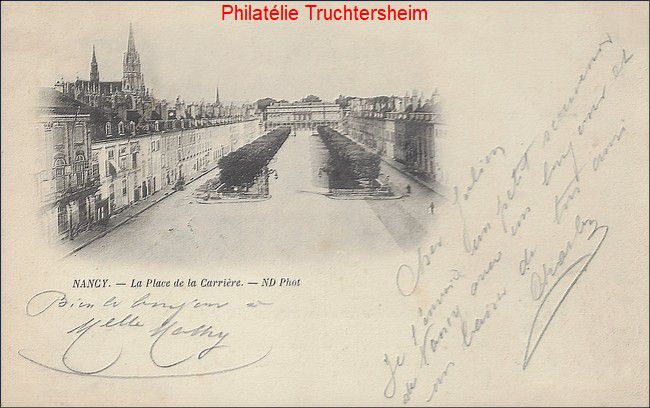 Philatélie Truchtersheim
NANCY. — La Place de la Carrière. — ND Phot
Bien le bonjour à
Melle Mathy
Cher Julien
Je t'envoie un petit souvenir
de Nancy avec un bonjour et
un baiser de ton ami
Charles